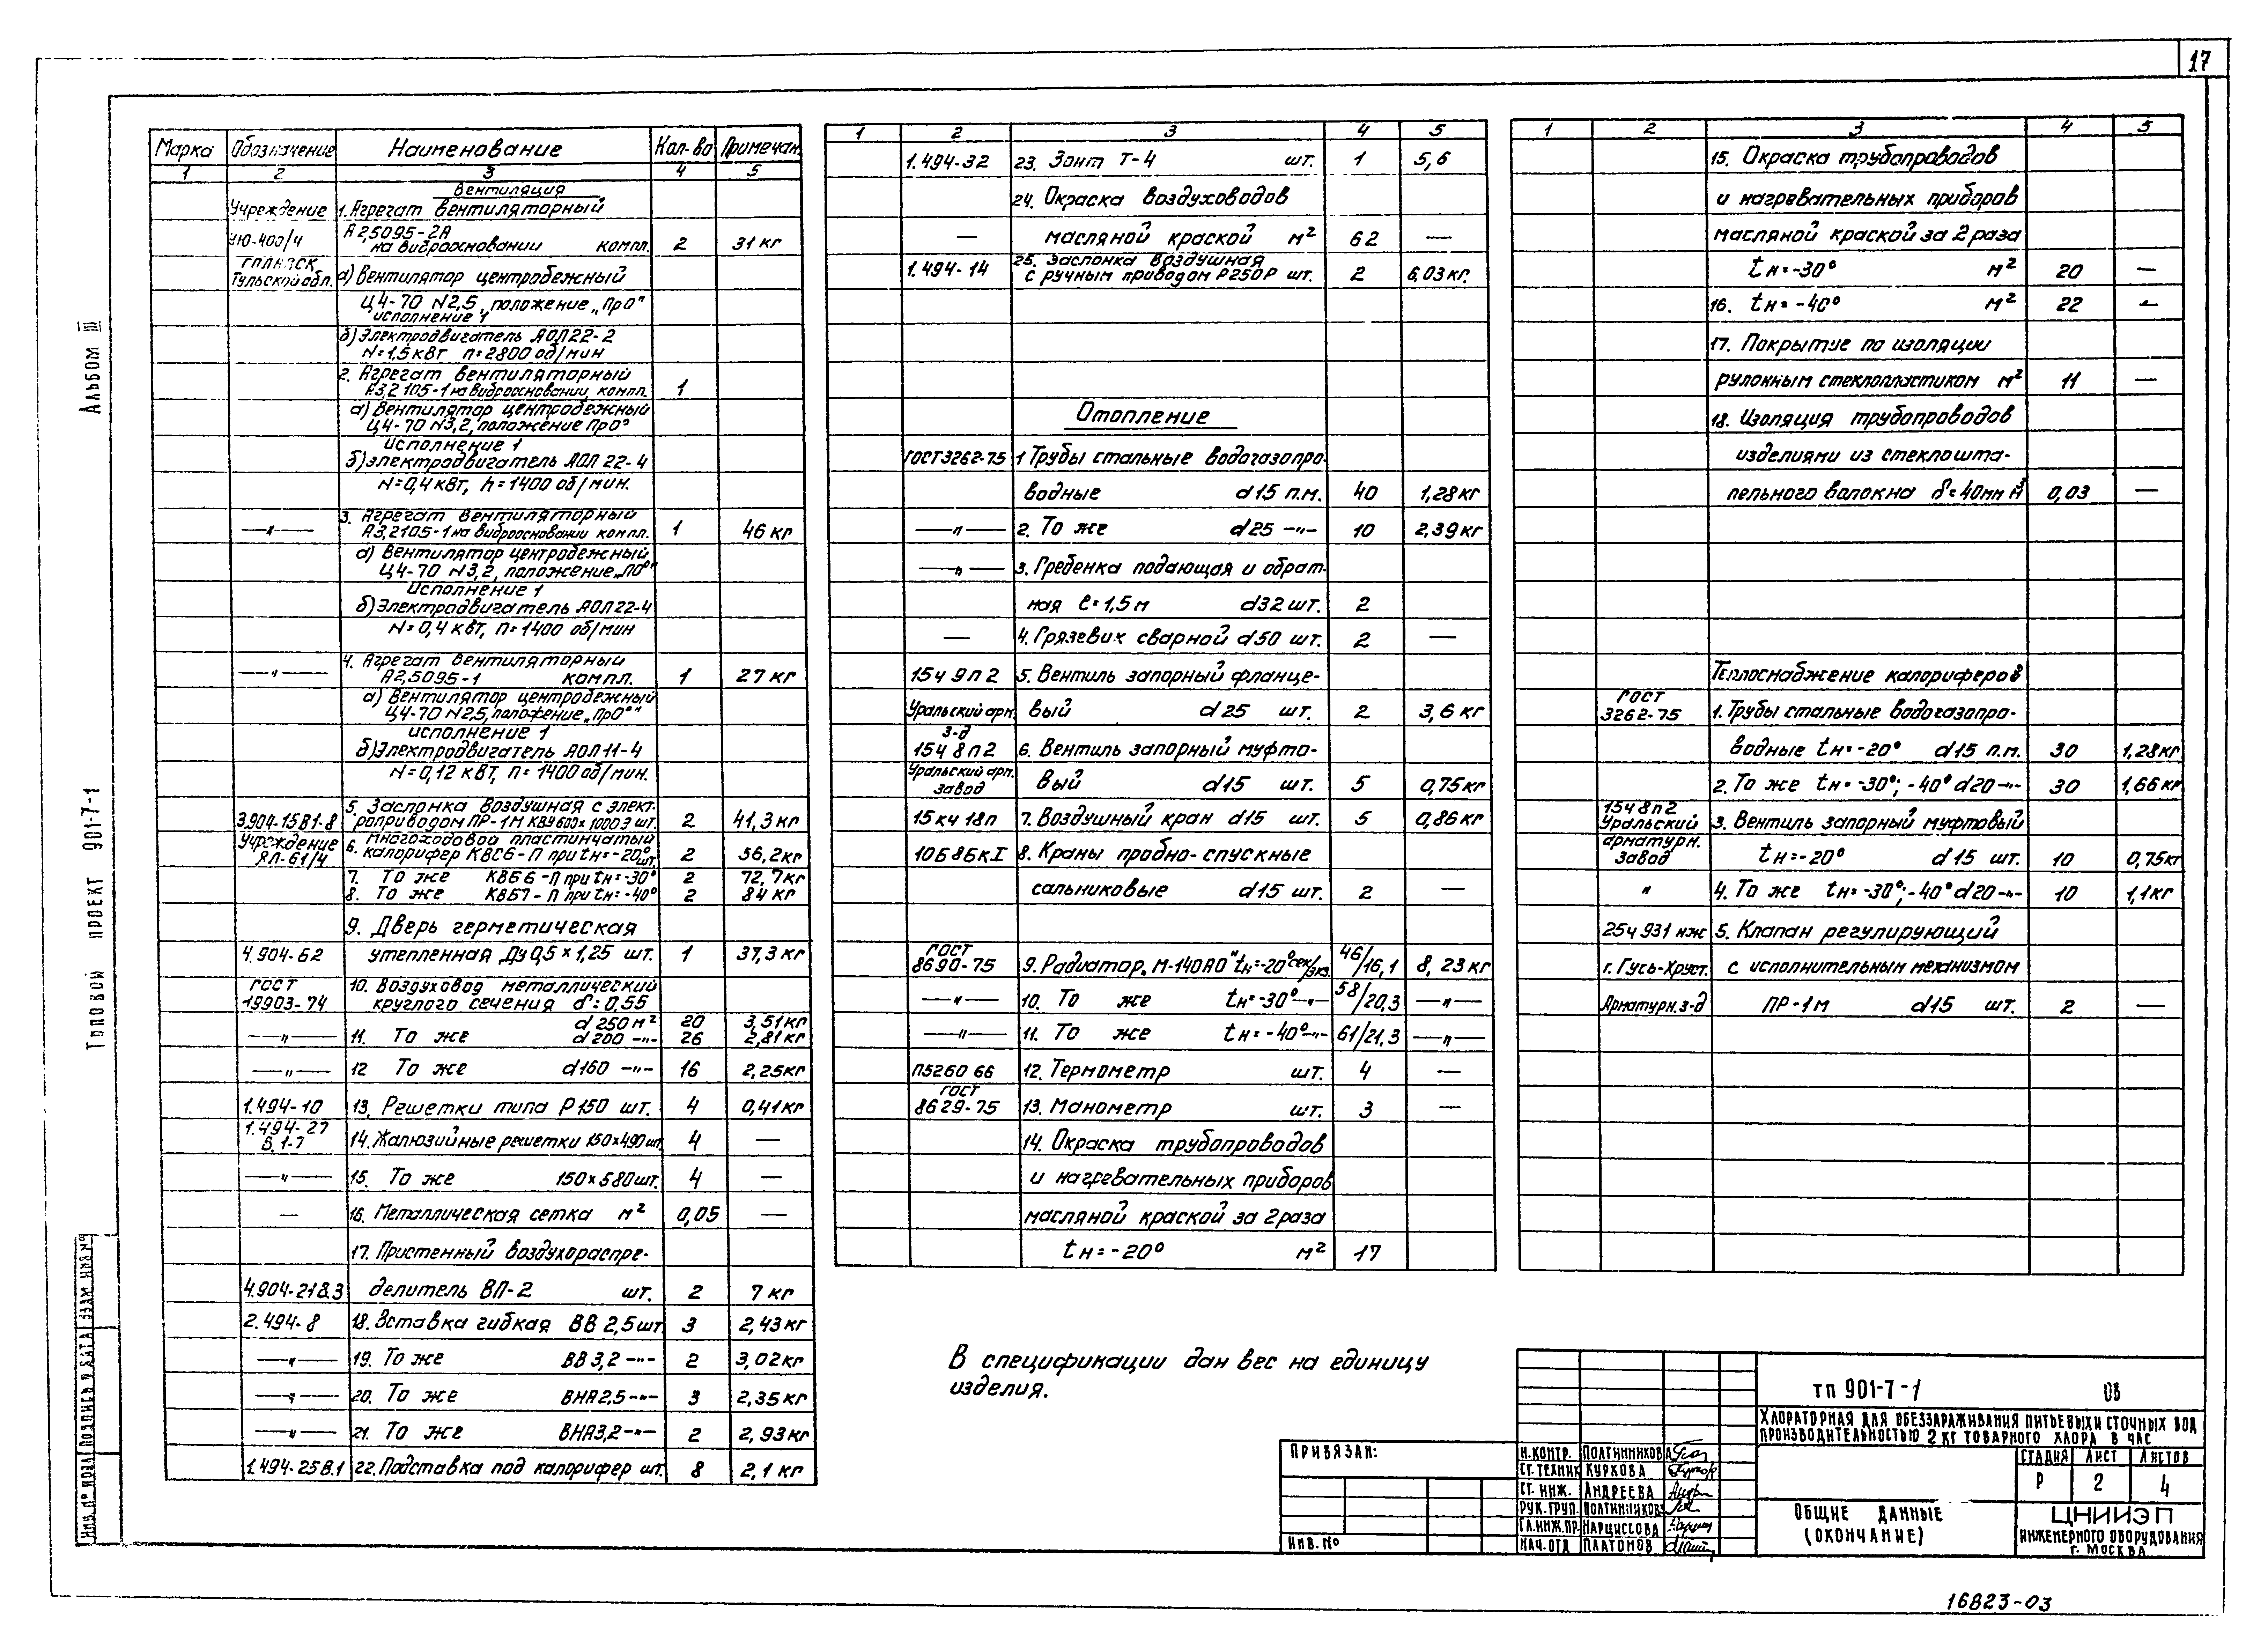 17
Альбом III
Типовой проект 901-7-1
Инв. № подл. Подпись и дата Взам. инв. №
Марка Обозначение Наименование Кол-во Примечан.
1 2 3 4 5
Вентиляция
Учреждение 1. Агрегат вентиляторный
УЮ-400/4 А2,5095-2А
на виброосновании компл. 2 31 кг
Тульской обл. а) Вентилятор центробежный
Ц4-70 N2,5, положение „Пр0°"
исполнение 1
б) Электродвигатель АОЛ22-2
N=1,5 квт n=2800 об/мин
2. Агрегат вентиляторный
А3,2105-1 на виброосновании компл. 1
а) Вентилятор центробежный
Ц4-70 N3,2, положение Пр0°
исполнение 1
б) электродвигатель АОЛ 22-4
N=0,4 квт, n=1400 об/мин.
—"— 3. Агрегат вентиляторный
А3,2105-1 на виброосновании компл. 1 46 кг
а) Вентилятор центробежный
Ц4-70 N3,2, положение „Л0°"
Исполнение 1
б) Электродвигатель АОЛ22-4
N=0,4 квт, n=1400 об/мин
—"— 4. Агрегат вентиляторный
А2,5095-1 компл. 1 27 кг
а) Вентилятор центробежный
Ц4-70 N2,5, положение „Пр0°"
исполнение 1
б) Электродвигатель АОЛ11-4
N=0,12 квт, n=1400 об/мин.
5. Заслонка воздушная с элект-
3.904-15В1-8 роприводом ПР-1М КВУ600х1000Э шт. 2 41,3 кг
Учреждение многоходовой пластинчатый
ЯЛ-61/4 6. калорифер КВС6-П при tн=-20° шт. 2 56,2кг
7. То же КВБ6-П при tн=-30° 2 72,7кг
8. То же КВБ7-П при tн=-40° 2 84 кг
9. Дверь герметическая
4.904-62 утепленная Ду 0,5 х 1,25 шт. 1 37,3 кг
ГОСТ 10. Воздуховод металлический
19903-74 круглого сечения δ=0,55
d 250 м² 20 3,51кг
—"— 11. То же d 200 —"— 26 2,81кг
—"— 12 То же d160 —"— 16 2,25кг
1.494-10 13. Решетки типа Р150 шт. 4 0,41кг
1.494-27
В.1-7 14. Жалюзийные решетки 150х490 шт. 4 —
—"— 15. То же 150х580 шт. 4 —
— 16. Металлическая сетка м² 0,05 —
17. Пристенный воздухораспре-
4.904-21В.3 делитель ВП-2 шт. 2 7 кг
2.494-8 18. Вставка гибкая ВВ 2,5 шт. 3 2,43кг
—"— 19. То же ВВ 3,2 —"— 2 3,02кг
—"— 20. То же ВНА2,5 —"— 3 2,35кг
—"— 21. То же ВНА3,2 —"— 2 2,93кг
1.494-25В.1 22. Подставка под калорифер шт. 8 2,1 кг
1 2 3 4 5
1.494-32 23. Зонт Т-4 шт. 1 5,6
24. Окраска воздуховодов
— масляной краской м² 62 —
25. Заслонка воздушная
1.494-14 с ручным приводом Р250Р шт. 2 6,03кг.
Отопление
ГОСТ3262-75 1 Трубы стальные водогазопро-
водные d15 п.м. 40 1,28кг
—"— 2. То же d25 —"— 10 2,39кг
—"— 3. Гребенка подающая и обрат-
ная ℓ=1,5м d32 шт. 2
— 4. Грязевик сварной d50 шт. 2 —
15ч 9п2 5. Вентиль запорный фланце-
Уральский арм. вый d25 шт. 2 3,6 кг
з-д
15ч 8п2 6. Вентиль запорный муфто-
Уральский арм.
завод вый d15 шт. 5 0,75кг
15кч 18п 7. Воздушный кран d15 шт. 5 0,86кг
10Б8БкI 8. Краны пробно-спускные
сальниковые d15 шт. 2 —
ГОСТ
8690-75 9. Радиатор „М-140АО" tн=-20° сек/экз. 46/16,1 8,23кг
—"— 10. То же tн=-30° —"— 58/20,3 —"—
—"— 11. То же tн=-40° —"— 61/21,3 —"—
П5260 66 12. Термометр шт. 4 —
ГОСТ
8629-75 13. Манометр шт. 3 —
14. Окраска трубопроводов
и нагревательных приборов
масляной краской за 2 раза
tн=-20° м² 17
1 2 3 4 5
15. Окраска трубопроводов
и нагревательных приборов
масляной краской за 2 раза
tн=-30° м² 20 —
16. tн=-40° м² 22 —
17. Покрытие по изоляции
рулонным стеклопластиком м² 11 —
18. Изоляция трубопроводов
изделиями из стеклошта-
пельного волокна δ=40мм м³ 0,03 —
Теплоснабжение калориферов
ГОСТ
3262-75 1. Трубы стальные водогазопро-
водные tн=-20° d15 п.м. 30 1,28кг
2. То же tн=-30°; -40° d20 —"— 30 1,66кг
15ч 8п2
Уральский 3. Вентиль запорный муфтовый
арматурн.
завод tн=-20° d15 шт. 10 0,75кг
" 4. То же tн=-30°; -40° d20 —"— 10 1,1кг
25ч 931 нж 5. Клапан регулирующий
г. Гусь-Хруст. с исполнительным механизмом
Арматурн. з-д ПР-1м d15 шт. 2 —
В спецификации дан вес на единицу
изделия.
Привязан:
Инв. №
Н.контр. Полтинников
Ст.техник Куркова
Ст. инж. Андреева
Рук. груп. Полтинников
Гл.инж.пр. Нарциссова
Нач.отд Платонов
тп 901-7-1 ОВ
Хлораторная для обеззараживания питьевых и сточных вод
производительностью 2 кг товарного хлора в час
Стадия Лист Листов
Р 2 4
Общие данные
(окончание)
ЦНИИЭП
инженерного оборудования
г. Москва
16823-03